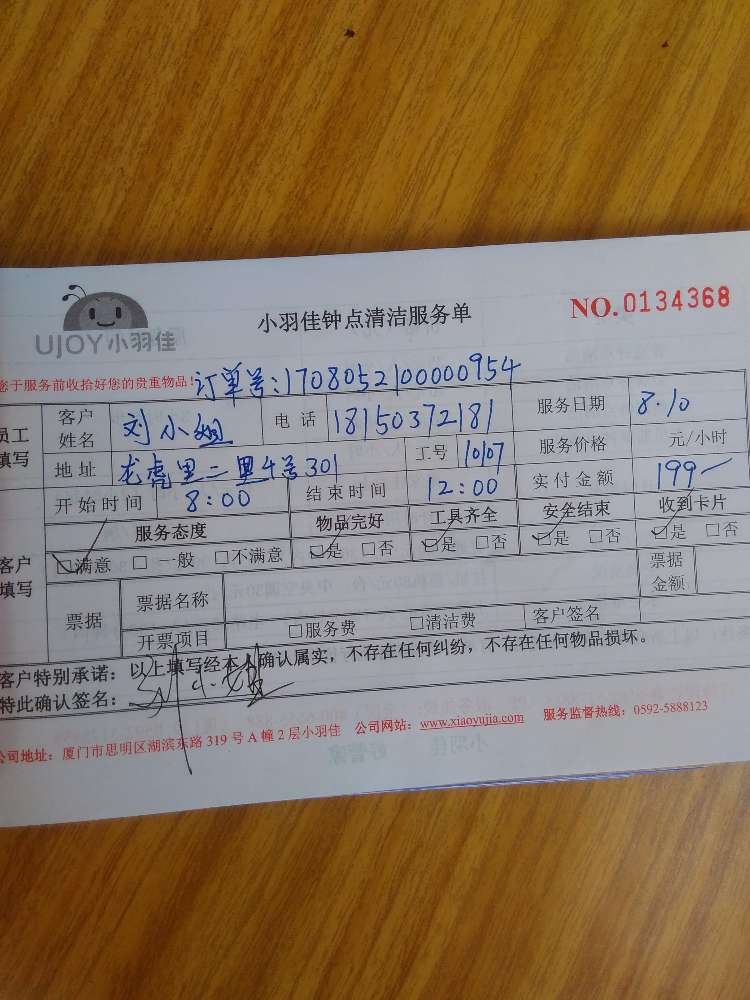 UJOY小羽佳
小羽佳钟点清洁服务单
NO.0134368
您于服务前收拾好您的贵重物品!订单号:1708052100000954
员工填写 客户姓名 刘小姐 电话 18150372181 服务日期 8.10
地址 龙虎里二里4号301 工号 10107 服务价格 元/小时
开始时间 8:00 结束时间 12:00 实付金额 199
服务态度 物品完好 工具齐全 安全结束 收到卡片
客户填写 □满意 □一般 □不满意 □是 □否 □是 □否 □是 □否 □是 □否
票据 票据名称 票据金额
开票项目 □服务费 □清洁费 客户签名
客户特别承诺:以上填写经本人确认属实,不存在任何纠纷,不存在任何物品损坏。
特此确认签名:刘小姐
公司地址:厦门市思明区湖滨东路 319 号 A 幢 2 层小羽佳 公司网站:www.xiaoyujia.com 服务监督热线:0592-5888123